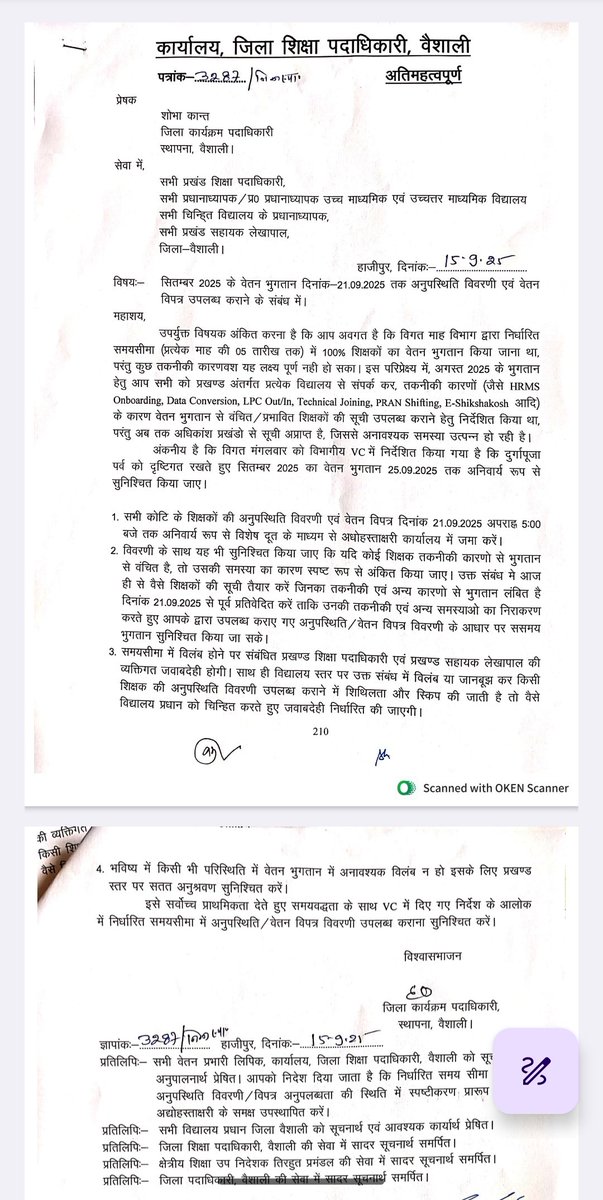 कार्यालय, जिला शिक्षा पदाधिकारी, वैशाली
पत्रांक–3287/नि०स्था०
अतिमहत्वपूर्ण
प्रेषक
शोभा कान्त
जिला कार्यक्रम पदाधिकारी
स्थापना, वैशाली।
सेवा में,
सभी प्रखंड शिक्षा पदाधिकारी,
सभी प्रधानाध्यापक/प्र० प्रधानाध्यापक उच्च माध्यमिक एवं उच्चत्तर माध्यमिक विद्यालय
सभी चिन्हित विद्यालय के प्रधानाध्यापक,
सभी प्रखंड सहायक लेखापाल,
जिला–वैशाली।
हाजीपुर, दिनांकः–15-9-25
विषयः– सितम्बर 2025 के वेतन भुगतान दिनांक–21.09.2025 तक अनुपस्थिति विवरणी एवं वेतन
विपत्र उपलब्ध कराने के संबंध में।
महाशय,
उपर्युक्त विषयक अंकित करना है कि आप अवगत है कि विगत माह विभाग द्वारा निर्धारित
समयसीमा (प्रत्येक माह की 05 तारीख तक) में 100% शिक्षकों का वेतन भुगतान किया जाना था,
परंतु कुछ तकनीकी कारणवश यह लक्ष्य पूर्ण नही हो सका। इस परिप्रेक्ष्य में, अगस्त 2025 के भुगतान
हेतु आप सभी को प्रखण्ड अंतर्गत प्रत्येक विद्यालय से संपर्क कर, तकनीकी कारणों (जैसे HRMS
Onboarding, Data Conversion, LPC Out/In, Technical Joining, PRAN Shifting, E-Shikshakosh आदि)
के कारण वेतन भुगतान से वंचित/प्रभावित शिक्षकों की सूची उपलब्ध कराने हेतु निर्देशित किया था,
परंतु अब तक अधिकांश प्रखंडो से सूची अप्राप्त है, जिससे अनावश्यक समस्या उत्पन्न हो रही है।
अंकनीय है कि विगत मंगलवार को विभागीय VC में निर्देशित किया गया है कि दुर्गापूजा
पर्व को दृष्टिगत रखते हुए सितम्बर 2025 का वेतन भुगतान 25.09.2025 तक अनिवार्य रूप से
सुनिश्चित किया जाए।
1. सभी कोटि के शिक्षकों की अनुपस्थिति विवरणी एवं वेतन विपत्र दिनांक 21.09.2025 अपराह्न 5:00
बजे तक अनिवार्य रूप से विशेष दूत के माध्यम से अधोहस्ताक्षरी कार्यालय में जमा करें।
2. विवरणी के साथ यह भी सुनिश्चित किया जाए कि यदि कोई शिक्षक तकनीकी कारणो से भुगतान
से वंचित है, तो उसकी समस्या का कारण स्पष्ट रूप से अंकित किया जाए। उक्त संबंध मे आज
ही से वैसे शिक्षकों की सूची तैयार करें जिनका तकनीकी एवं अन्य कारणो से भुगतान लंबित है
दिनांक 21.09.2025 से पूर्व प्रतिवेदित करें ताकि उनकी तकनीकी एवं अन्य समस्याओ का निराकरण
करते हुए आपके द्वारा उपलब्ध कराए गए अनुपस्थिति/वेतन विपत्र विवरणी के आधार पर ससमय
भुगतान सुनिश्चित किया जा सके।
3. समयसीमा में विलंब होने पर संबंधित प्रखण्ड शिक्षा पदाधिकारी एवं प्रखण्ड सहायक लेखापाल की
व्यक्तिगत जवाबदेही होगी। साथ ही विद्यालय स्तर पर उक्त संबंध में विलंब या जानबूझ कर किसी
शिक्षक की अनुपस्थिति विवरणी उपलब्ध कराने में शिथिलता और स्किप की जाती है तो वैसे
विद्यालय प्रधान को चिन्हित करते हुए जवाबदेही निर्धारित की जाएगी।
210
Scanned with OKEN Scanner
की व्यक्तिगत
किसी
वैसे
4. भविष्य में किसी भी परिस्थिति में वेतन भुगतान में अनावश्यक विलंब न हो इसके लिए प्रखण्ड
स्तर पर सतत अनुश्रवण सुनिश्चित करें।
इसे सर्वोच्च प्राथमिकता देते हुए समयवद्धता के साथ VC में दिए गए निर्देश के आलोक
में निर्धारित समयसीमा में अनुपस्थिति/वेतन विपत्र विवरणी उपलब्ध कराना सुनिश्चित करें।
विश्वासभाजन
जिला कार्यक्रम पदाधिकारी,
स्थापना, वैशाली।
ज्ञापांकः–3287/नि०स्था० हाजीपुर, दिनांकः–15-9-25
प्रतिलिपिः– सभी वेतन प्रभारी लिपिक, कार्यालय, जिला शिक्षा पदाधिकारी, वैशाली को
अनुपालनार्थ प्रेषित। आपको निदेश दिया जाता है कि निर्धारित समय सीमा
अनुपस्थिति विवरणी/विपत्र अनुपलब्धता की स्थिति में स्पष्टीकरण प्रारूप
अद्योहस्ताक्षरी के समक्ष उपस्थापित करें।
प्रतिलिपिः– सभी विद्यालय प्रधान जिला वैशाली को सूचनार्थ एवं आवश्यक कार्यार्थ प्रेषित।
प्रतिलिपिः– जिला शिक्षा पदाधिकारी, वैशाली की सेवा में सादर सूचनार्थ समर्पित।
प्रतिलिपिः– क्षेत्रीय शिक्षा उप निदेशक तिरहुत प्रमंडल की सेवा में सादर सूचनार्थ समर्पित।
प्रतिलिपिः– जिला पदाधिकारी, वैशाली की सेवा में सादर सूचनार्थ समर्पित।